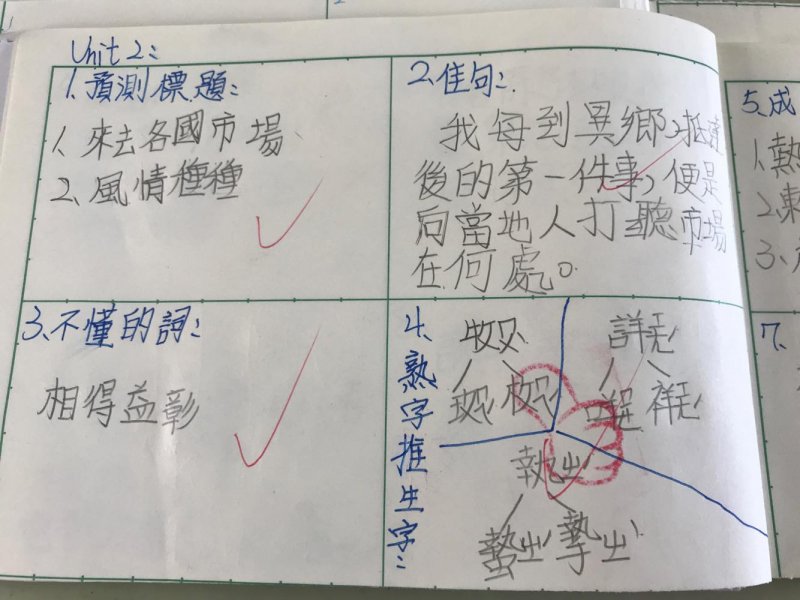 Unit 2:
1. 預測標題:
1. 來去各國市場
2. 風情種種
2. 佳句:
我每到異鄉,抵達
後的第一件事,便是
向當地人打聽市場
在何處。
3. 不懂的詞:
相得益彰
4. 熟字推生字:
執ㄓˊ
蟄ㄓˊ 摯ㄓˋ
5. 成
1. 熱
2.
3.
7.